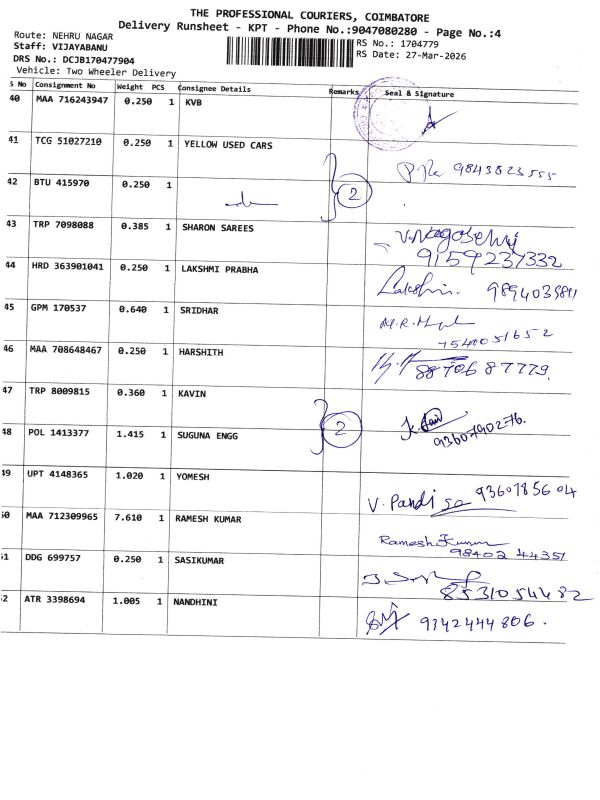 THE PROFESSIONAL COURIERS, COIMBATORE
Delivery Runsheet - KPT - Phone No.:9047080280 - Page No.:4
Route: NEHRU NAGAR
RS No.: 1704779
Staff: VIJAYABANU
RS Date: 27-Mar-2026
DRS No.: DCJB170477904
Vehicle: Two Wheeler Delivery
S No Consignment No Weight PCS Consignee Details Remarks Seal & Signature
40 MAA 716243947 0.250 1 KVB
41 TCG 51027210 0.250 1 YELLOW USED CARS 9843823555
42 BTU 415970 0.250 1 2
43 TRP 7098088 0.385 1 SHARON SAREES
9159237332
44 HRD 363901041 0.250 1 LAKSHMI PRABHA Lakshmi.
45 GPM 170537 0.640 1 SRIDHAR
7540051652
46 MAA 708648467 0.250 1 HARSHITH 8870687779.
47 TRP 8009815 0.360 1 KAVIN
9360790276.
48 POL 1413377 1.415 1 SUGUNA ENGG 2
49 UPT 4148365 1.020 1 YOMESH V. Pandi 9360185604
50 MAA 712309965 7.610 1 RAMESH KUMAR Ramesh Kumar
98402 44351
51 DDG 699757 0.250 1 SASIKUMAR
8531054482
52 ATR 3398694 1.005 1 NANDHINI 9342444806.